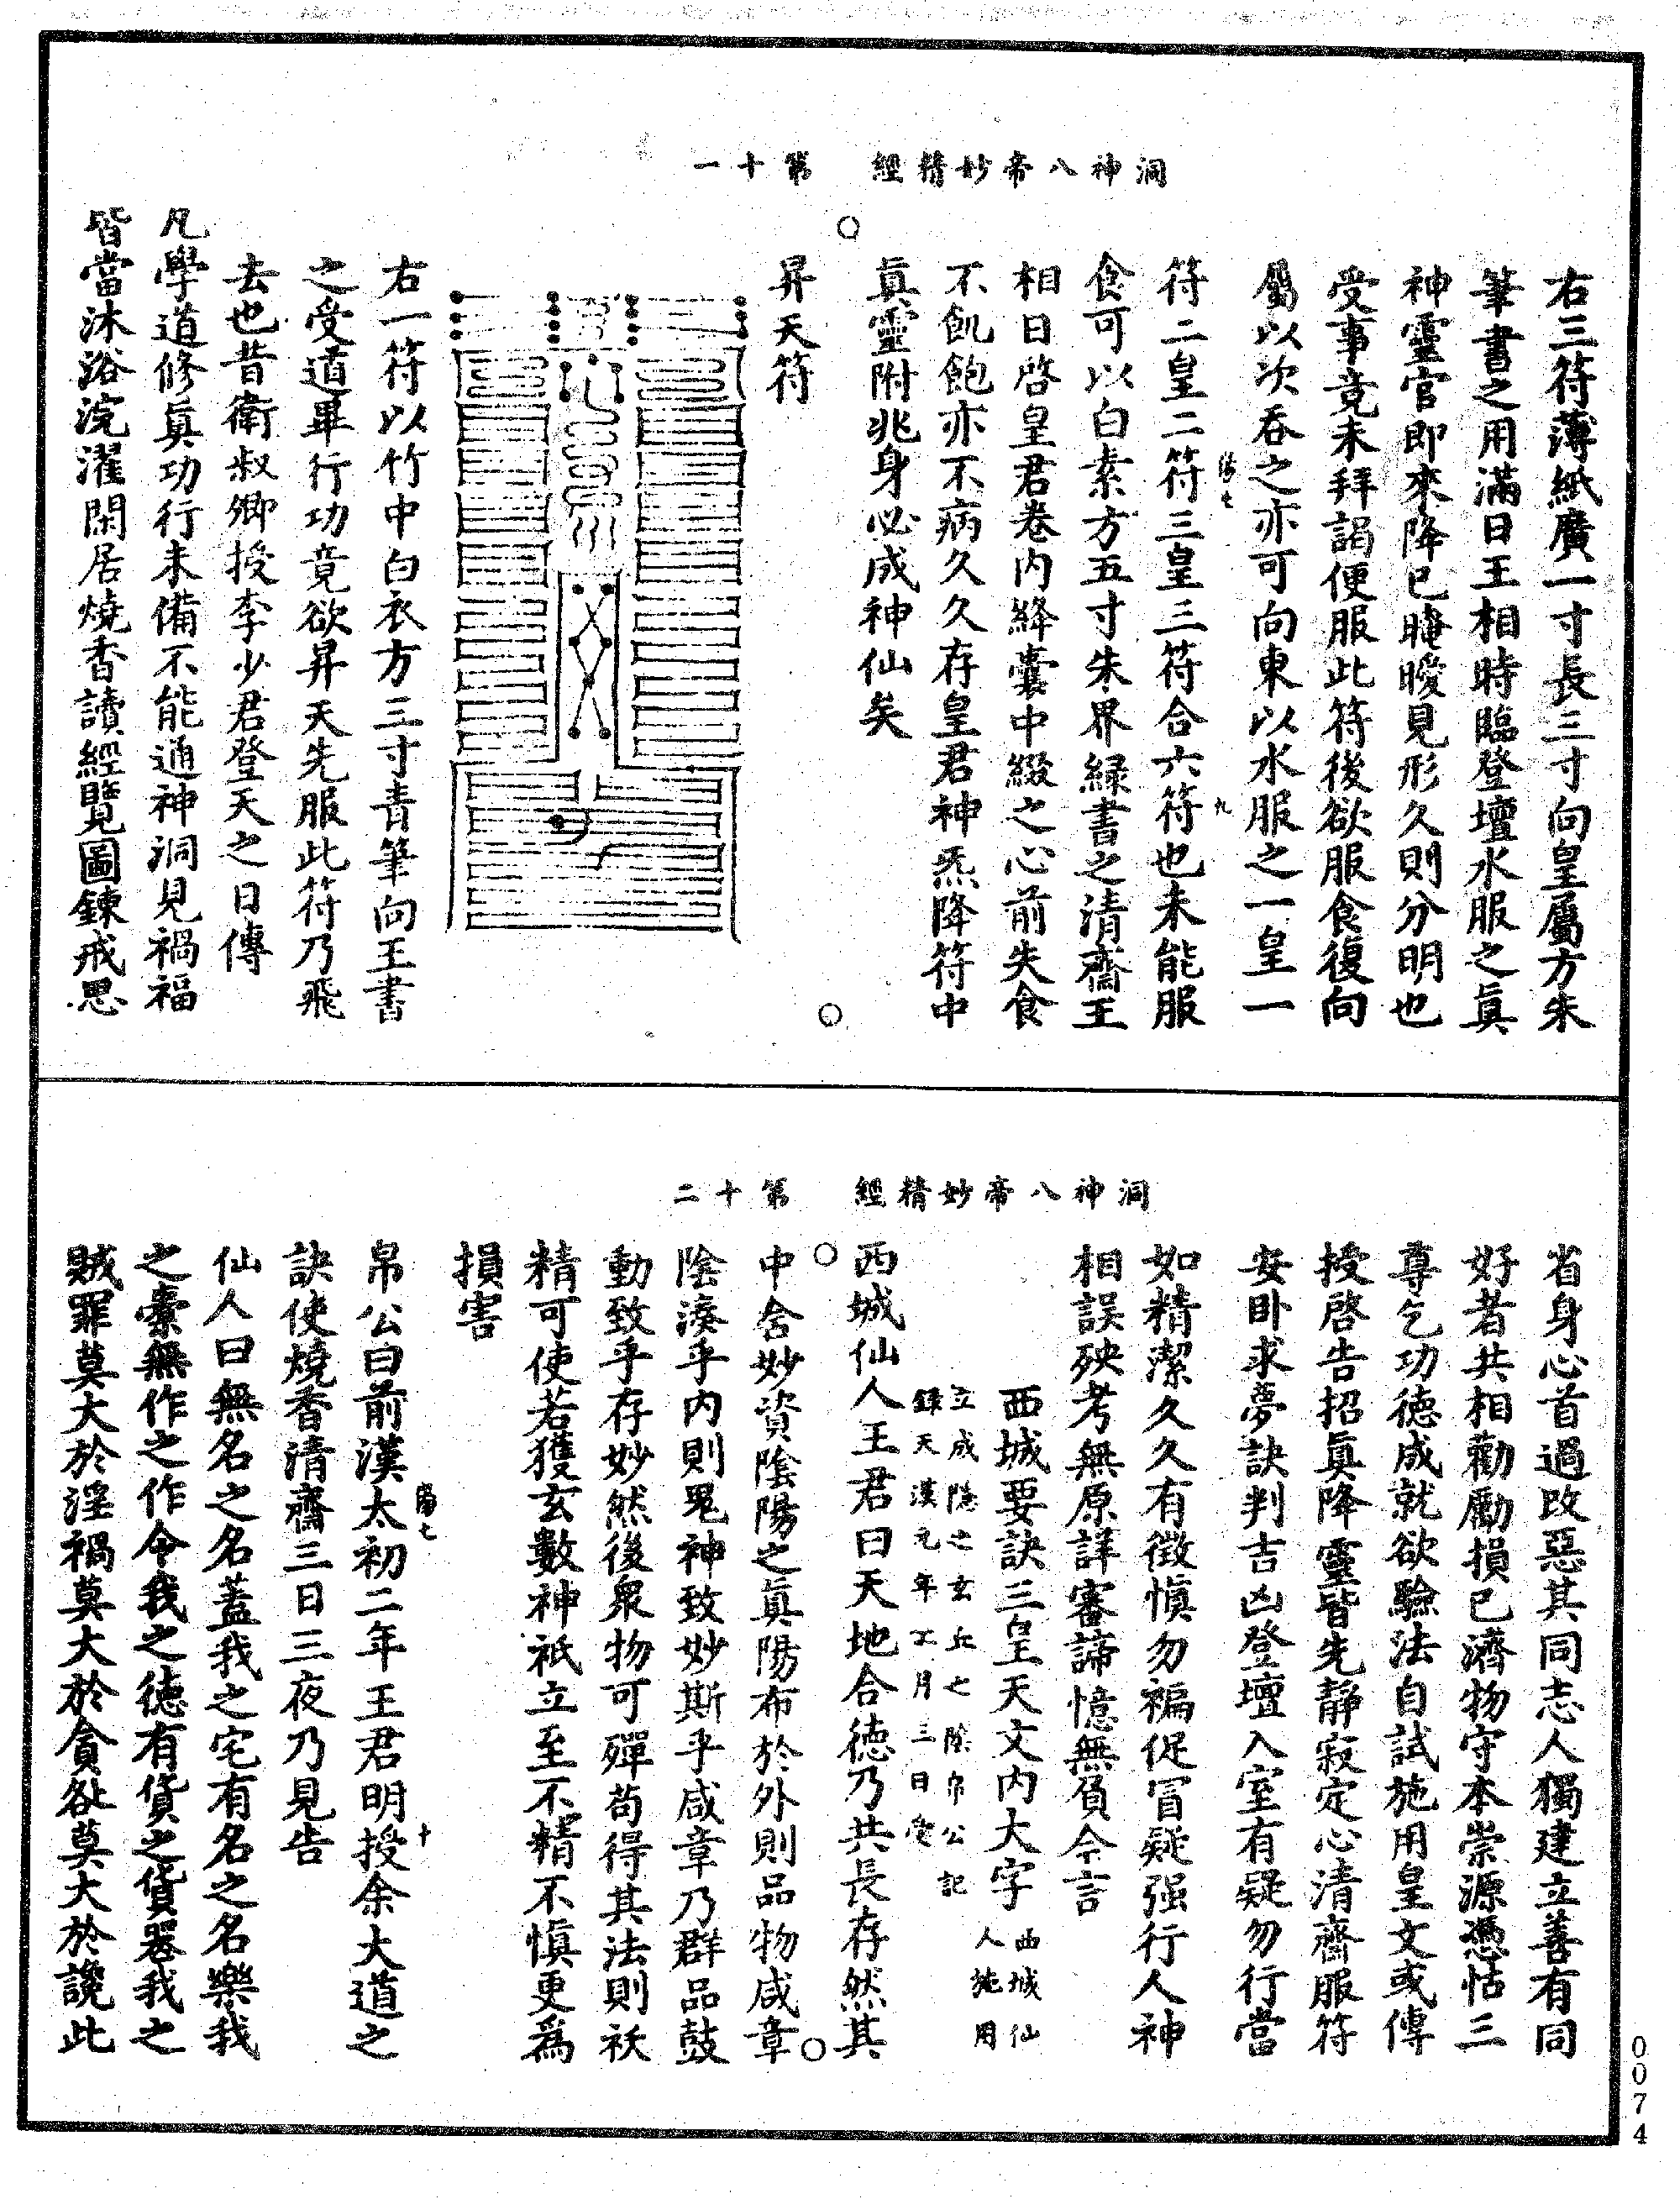 洞神八帝妙精經　第十一
右三符薄紙廣一寸長三寸向皇屬方朱
筆書之用滿日王相時臨登壇水服之眞
神靈官即來降已晻曖見形久則分明也
受事竟未拜謁便服此符後欲服食復向
屬以次吞之亦可向東以水服之一皇一
符二皇二符三皇三符合六符也未能服
食可以白素方五寸朱界綠書之清齋王
相日啓皇君卷内絳囊中綴之心前失食
不飢飽亦不病久久存皇君神炁降符中
眞靈附兆身必成神仙矣
昇天符
右一符以竹中白衣方三寸青筆向王書
之受道畢行功竟欲昇天先服此符乃飛
去也昔衛叔卿授李少君登天之日傳
凡學道修眞功行未備不能通神洞見禍福
皆當沐浴浣濯閑居燒香讀經覽圖鍊戒思
洞神八帝妙精經　第十二
省身心首過改惡其同志人獨建立善有同
好者共相勸勵損己濟物守本崇源憑恬三
尊乞功德成就欲驗法自試施用皇文或傳
授啓告招眞降靈皆先靜寂定心清齋服符
安卧求夢訣判吉凶登壇入室有疑勿行當
如精潔久久有徵愼勿褊促冒疑强行人神
相誤殃考無原詳審諦憶無負今言
西城要訣三皇天文内大字西城仙人施用
立成隱之玄丘之陰帛公記
錄天漢元年工月三日受
西城仙人王君曰天地合德乃共長存然其
中舍妙資陰陽之眞陽布於外則品物咸章
陰湊乎内則鬼神致妙妙斯乎咸章乃群品鼓
動致乎存妙然後衆物可殫苟得其法則祅
精可使若獲玄數神祇立至不精不愼更爲
損害
帛公曰前漢太初二年王君明授余大道之
訣使燒香清齋三日三夜乃見告
仙人曰無名之名蓋我之宅有名之名樂我
之橐無作之作令我之德有貨之貨器我之
賊罪莫大於淫禍莫大於貪咎莫大於讒此
0074